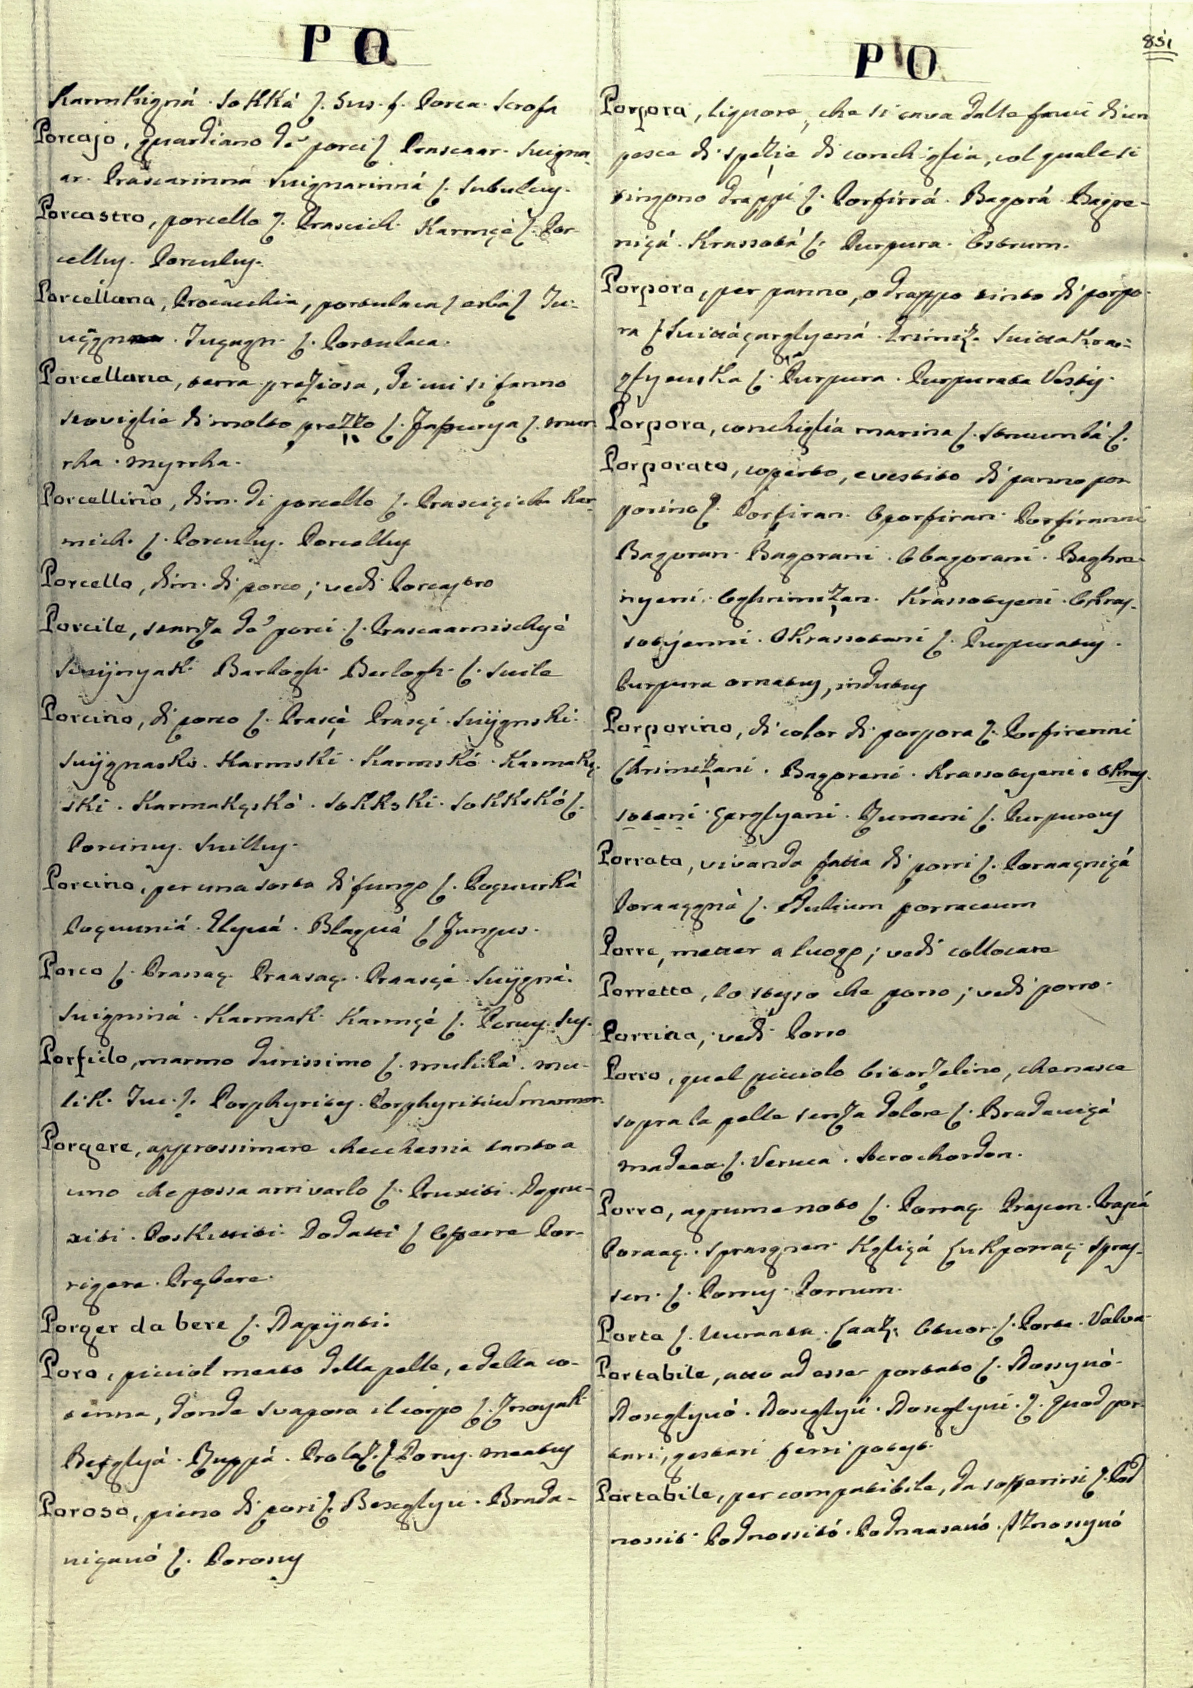 PO
Karmkigná. Sokká ʃ. Sus. f. Porca. Scrofa
Porcajo, guardiano de' porci ʃ. Prascaar. Suigna-
ar. Prascarinná Suignarinná ʃ. Subulcus.
Porcastro, porcello ʃ. Prascich. Karmçè ʃ. Por-
cellus. Porculus.
Porcellana, Procacchia, portulaca ʃ erba ʃ Tu-
Tuçagn. ʃ. Portulaca.
Porcellana, terra preziosa, di cui si fanno
stoviglie di molto prezzo ʃ. ʃ. mur
rha. myrrha.
Porcellino, dim. di porcello ʃ. Prasciçich Kar-
mich. ʃ. Porculus. Porcellus
Porcello, dim. di porco; vedi Porcastro
Porcile, stanza de' porci. ʃ. Prascaarnischyé
Suijnyak. Barlogh. Berlogh. ʃ. Suile
Porcino, di porco ʃ. Prasçè Prasçi. Suijgnski.
Suijgnasko. Karmski. Karmskó. Karmakç-
ski. Karmakçskó. Sokkski. Sokkskó ʃ.
Porcinus. Suillus.
Porcino, per una sorta di fungo ʃ. Peçuurká
Peçuurniá. Blaguá ʃ Fungus.
Porco ʃ. Prassaç. Praasaç. Praasçé. Suijgná.
Suigniná. Karmak. Karmçé ʃ. Porcus. Sus.
Porfido, marmo durissimo ʃ. muliká. mu-
lik. Tuc. ʃ. Porphyrites. Porphyriticum marmor.
Porgere, approssimare checchessia tanto a
uno che possa arrivarlo ʃ. Prusciti. Dopru-
xiti. Poskittiti. Dodatti ʃ Offerre Por-
rigere. Præbere.
Porger da bere ʃ. Napijati.
Poro, picciol meato della pelle, e della co-
tenna, donde svapora il corpo ʃ. Znoyak
Bexglyá. Ruppá. Prolaz. ʃ. Porus. meatus
Poroso, pieno di pori ʃ. Bexglyu. Brada-
viçauó ʃ. Porosus
PO
851
Porpora, liquore, che si cava dalle fauci di un
pesce di spezie di conchiglia, col quale si
tingono drappi ʃ. Porfirrá. Bagorá. Bagre-
niçá. Krassotá ʃ. Purpura. Ostrum.
Porpora, per panno, o drappo tinto di porpo-
ra ʃ Suittáçarglyená. Grimiz. Suitta
ʃ. Purpura. Purpurata Vestis.
Porpora, conchiglia marina ʃ. ʃ.
Porporato, coperto, e vestito di panno por-
porino ʃ. Porfiran. Oporfiran. Porfiranni
Bagoran. Bagorani. Obagorani. Baghre-
nyeni. Oghrimizan. Krassotyeni. Okras-
sotyenni. Okrassotani ʃ. Purpuratus.
Purpura ornatus, indutus
Porporino, di color di porpora ʃ. Porfirenni
Chrimizani. Bagoreni. Krassotyeni. Okras-
sotani. Çarglyani. Rumeni ʃ. Purpureus
Porrata, vivanda fatta di porri ʃ. Poraaçniçá
Poraaçgná ʃ. Pulsum porraceum
Porre, metter a luogo; vedi collocare
Porretta, lo stesso che porro; vedi porro.
Porrina, vedi Porro
Porro, quel picciolo bitorzolino, che nasce
sopra la pelle senza dolore ʃ. Bradauiçá
madeex. ʃ. Verruca. Acrochordon.
Porro, agrume noto ʃ. Porraç. Prascen.
Poraaç. Kgliçá Lukporraç. Spras-
sen. ʃ. Porrus. Porrum.
Porta ʃ. Uuratta. Otuor. ʃ. Porta. Valva
Portabile, atto ad esser portato ʃ. Nossyuó.
Noscglyuó. Noscglyu. Noscglyui. ʃ. Quod por-
tari, gestari ferri potest.
Portabile, per compatibile, da sofferirsi ʃ. Pod
nossit. Podnossitó. Podnaasauó. Uznossyuó